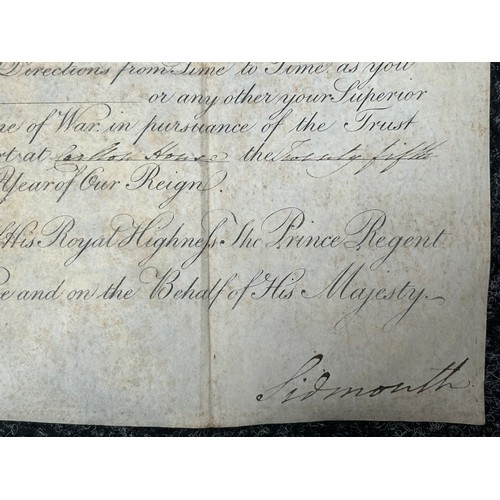 Directions from Time to Time, as you
or any other your Superior
of War, in pursuance of the Trust
at Carlton House the Twenty fifth
Year of Our Reign.
His Royal Highness The Prince Regent
and on the Behalf of His Majesty.
Sidmouth